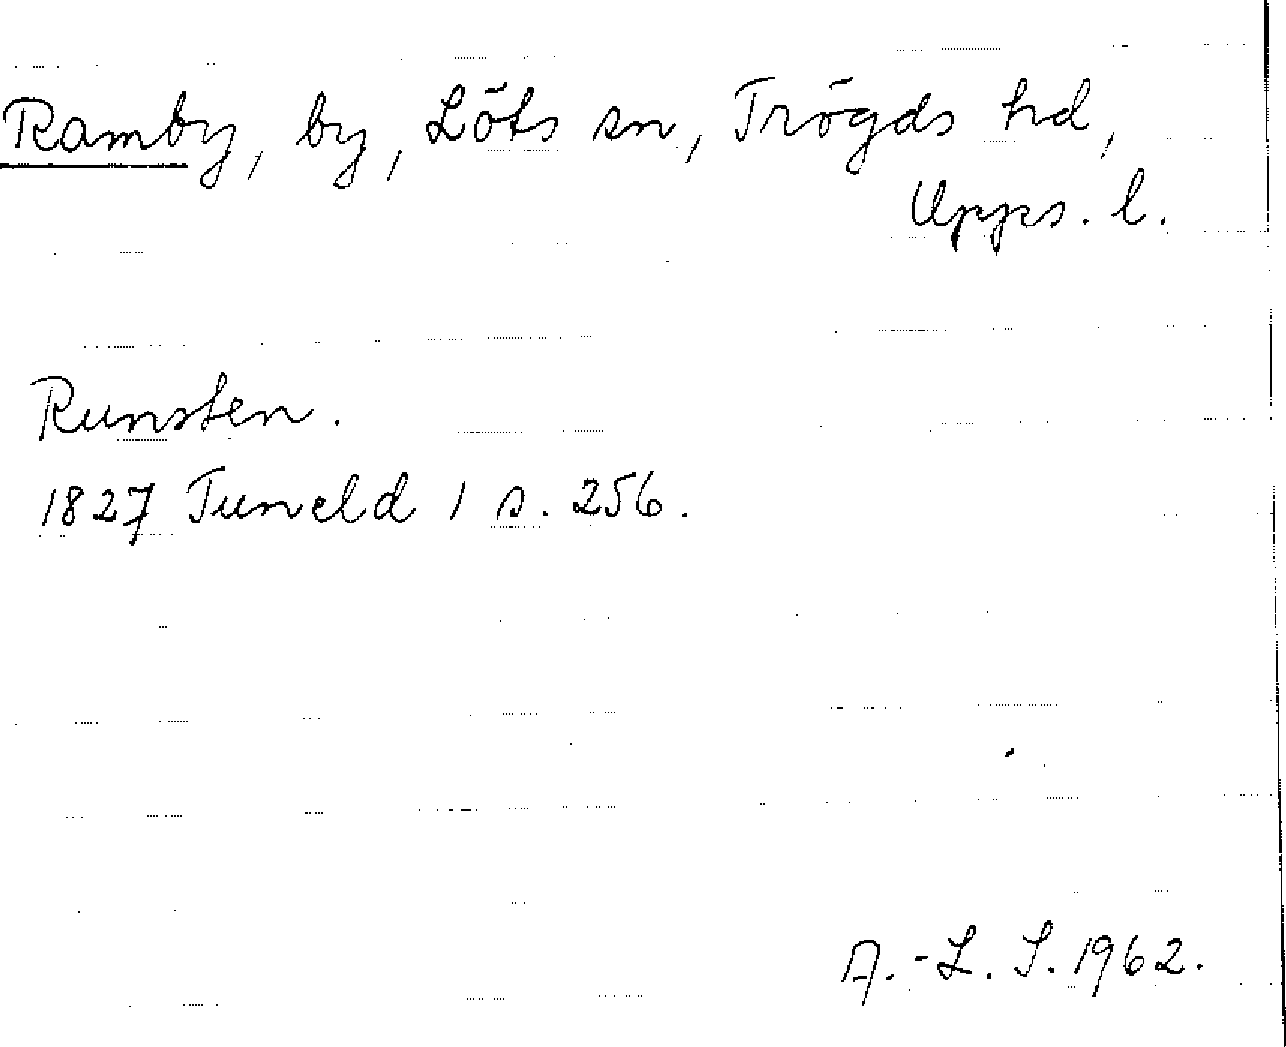 Ramby, by, Löts sn, Trögds hd,
Upps. l.
Runsten.
1827 Tuneld 1 s. 256.
A.-L. S. 1962.